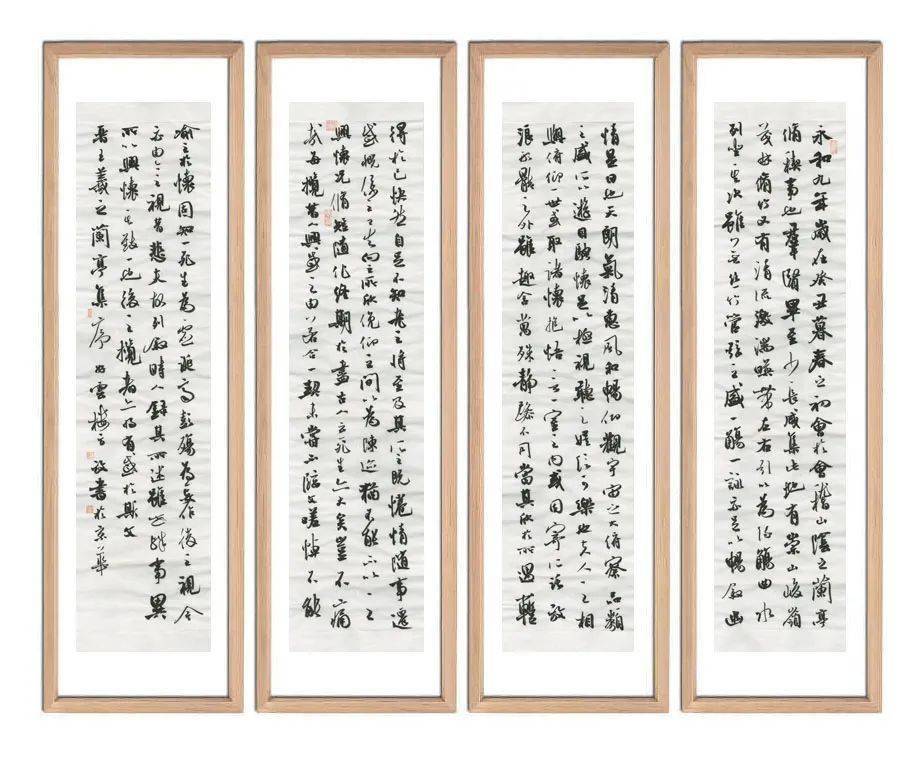 永和九年歲在癸丑暮春之初會於會稽山陰之蘭亭
脩稧事也羣賢畢至少長咸集此地有崇山峻嶺
茂林脩竹又有清流激湍暎帶左右引以為流觴曲水
列坐其次雖無絲竹管弦之盛一觴一詠亦足以暢敘幽
情是日也天朗氣清惠風和暢仰觀宇宙之大俯察品類
之盛所以遊目騁懷足以極視聽之娛信可樂也夫人之相
與俯仰一世或取諸懷抱悟言一室之內或因寄所託放
浪形骸之外雖趣舍萬殊靜躁不同當其欣於所遇蹔
得於己快然自足不知老之將至及其所之既惓情隨事遷
感慨係之矣向之所欣俛仰之間以為陳迹猶不能不以之
興懷況脩短隨化終期於盡古人云死生亦大矣豈不痛
哉每攬昔人興感之由若合一契未嘗不臨文嗟悼不能
喻之於懷固知一死生為虛誕齊彭殤為妄作後之視今
亦由今之視昔悲夫故列敘時人錄其所述雖世殊事異
所以興懷其致一也後之攬者亦將有感於斯文
晉王羲之蘭亭集序 雲樓主敬書於京華